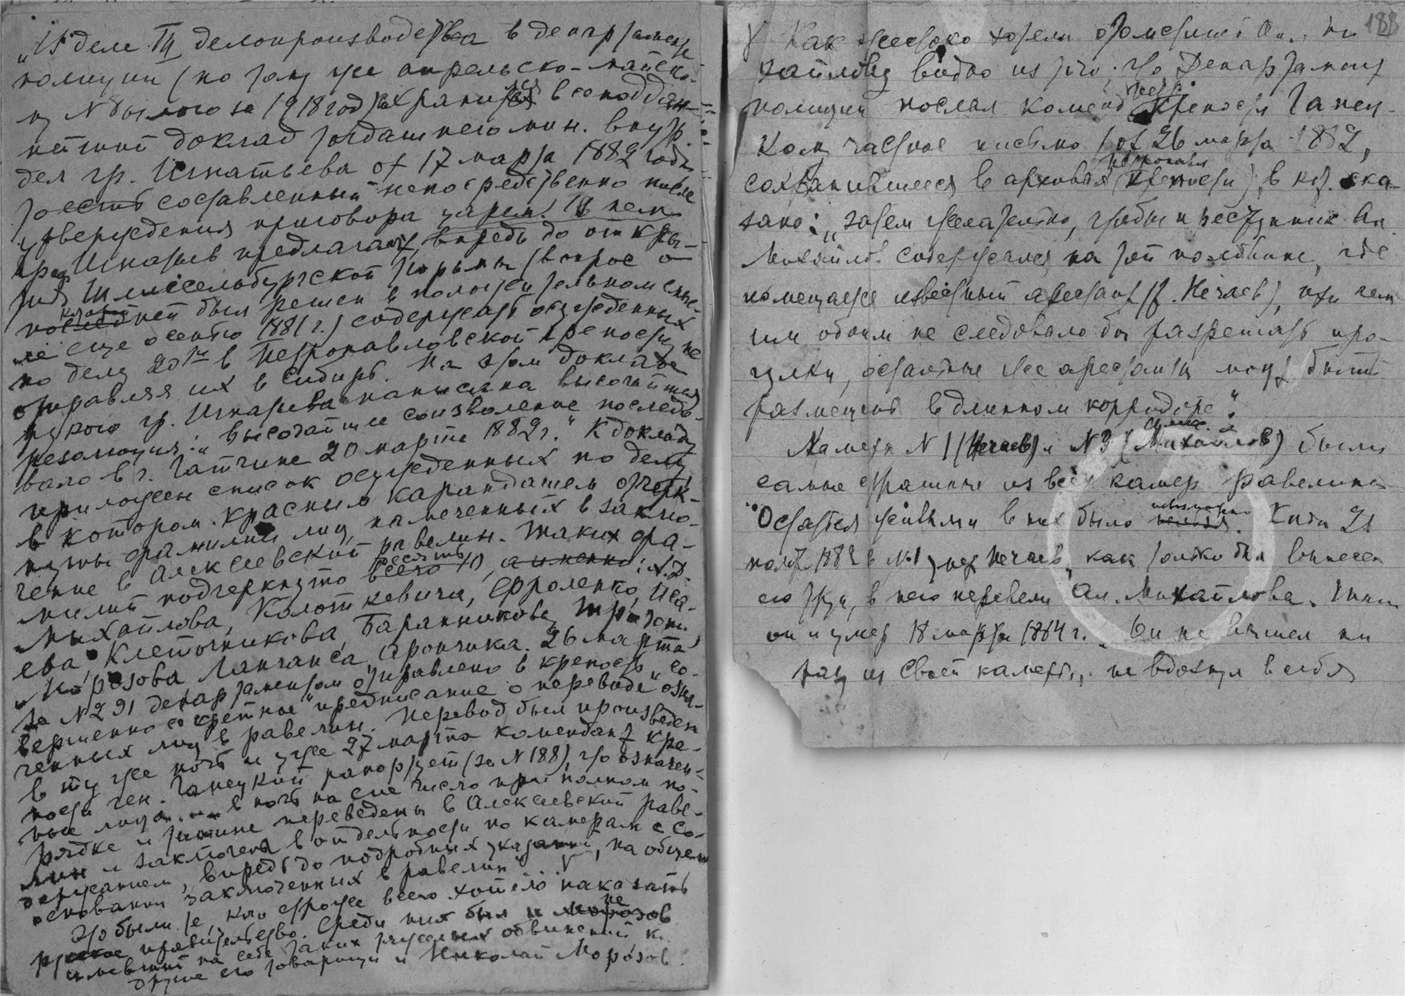 „Из дела III делопроизводства в департаменте
полиции (по тому же апрельско-майско-
му № Былого за 1918 год) хранится всеподдан-
нейший доклад тогдашнего мин. внутр.
дел гр. Игнатьева от 17 марта 1882 года
то есть составленный непосредственно после
утверждения приговора царем. В нем
граф Игнатьев предлагает, впредь до откры-
тия Шлиссельбургской тюрьмы (вопрос о
последней был решен в положительном смыс-
ле еще осенью 1881 г.) содержать осужденных
по делу 20ти в Петропавловской крепости, не
отправляя их в Сибирь. На этом докладе
гр. Игнатьева написана высочайшая
резолюция: „высочайшее соизволение последо-
вало в г. Гатчине 20 марта 1882 г." К докладу
приложен список осужденных по делу
в котором красным карандашом отчерк-
нуты фамилии лиц, намеченных в заклю-
чение в Алексеевский равелин. Таких фа-
милий подчеркнуто десять всего 10, а именно: А.Д.
Михайлова, Колоткевича, Фроленко, Иса-
ева, Клеточникова, Баранникова, Тригони,
Морозова, Ланганса, Арончика. 26 марта
за № 291 департаментом отправлено в крепость „со-
вершенно секретное" предписание о переводе озна-
ченных лиц в равелин. Перевод был произведен
в ту же ночь и уже 27 марта комендант кре-
пости ген. Ганецкий рапортует (за № 188), что означен-
ные лица ... в ночь на сие число при полном по-
рядке и тишине переведены в Алексеевский раве-
лин и заключены в отдельности по камерам с со-
держанием, впредь до подробных указаний, на общем
основании заключенных в равелин"...
Это были те, кого строже всего хотело наказать
русское правительство. Среди них был и не
имевший на себе таких тяжелых обвинений к.
другие его товарищи и Николай Морозов.
188
V Как жестоко хотели отомстить Ал. Ми-
хайлову видно из того, что Департамент
полиции послал коменд. крепости Ганец-
кому частное письмо (от 26 марта 1882,
сохранившееся в архивах Петропавл. крепости), в кот. ска-
зано: „затем желательно, чтобы преступник Ал.
Михайлов содержался на той половине, где
помещается известный арестант (т. Нечаев), при чем
им обоим не следовало бы разрешать про-
гулки, остальные же арестанты могут быть
размещены в длинном корридоре".
Камеры № 1 (Нечаев) и № 3 (Михайлов) были
самые страшные из всех камер равелина.
Остаться живым в них было невозможно нельзя. Когда 21
нояб. 1882 в № 1 умер Нечаев, как только был вынесен
его труп, в нее перевели Ал. Михайлова. Там
он и умер 18 марта 1884 г. Он не вышел ни
разу из своей камеры, не вдохнул в себя